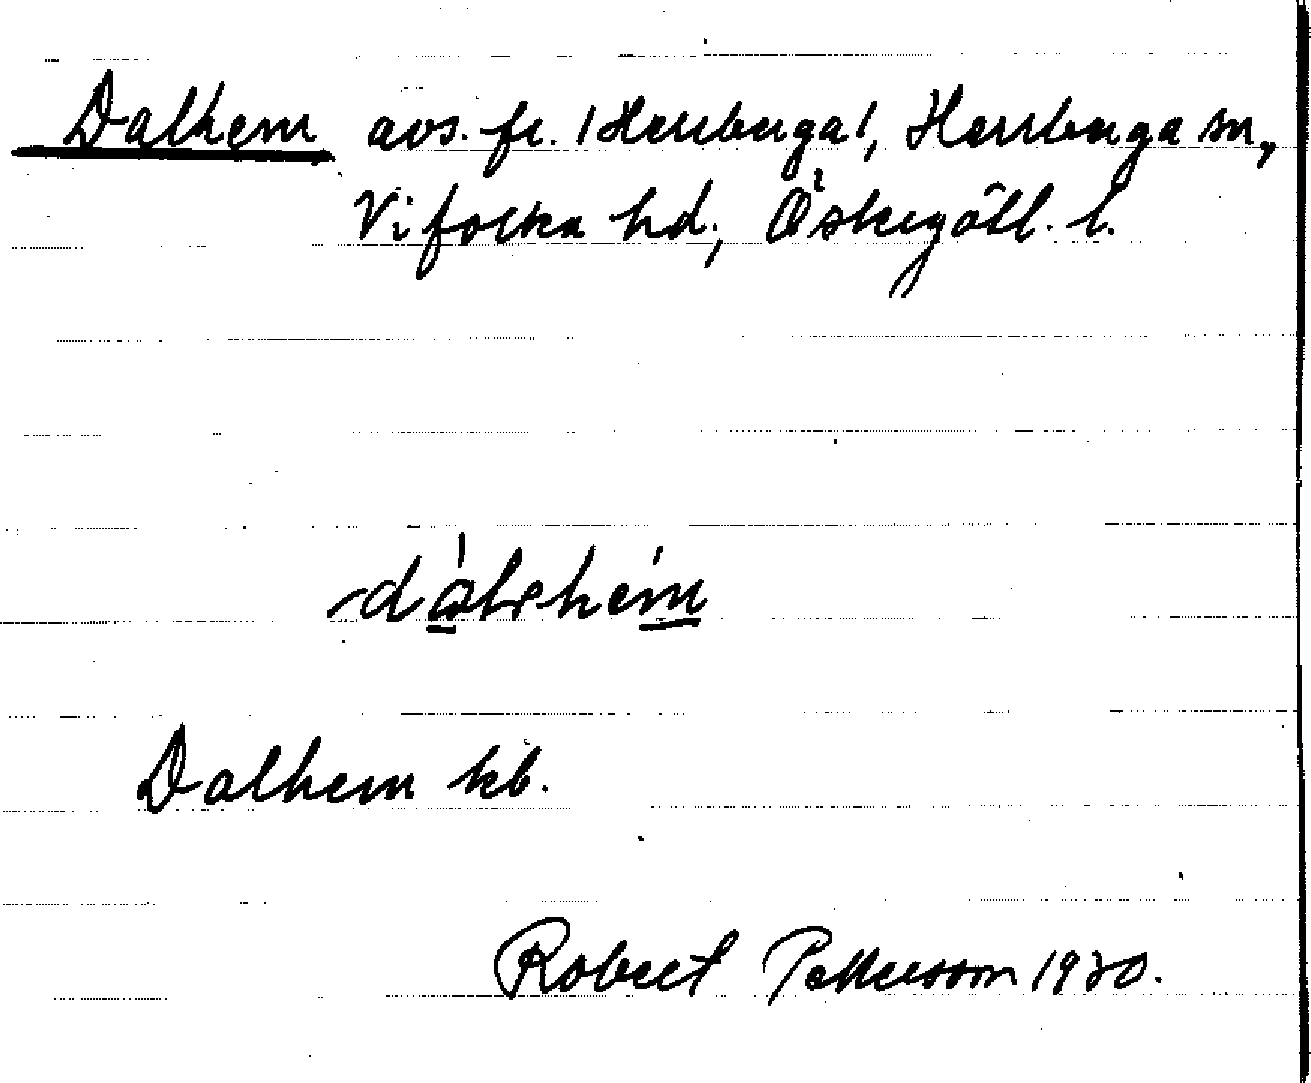 Dalhem avs. fr. /Herrberga/, Herrberga sn,
Vifolka hd, Östergötl. l.
Dalhem kb.
Robert Pettersson 1930.